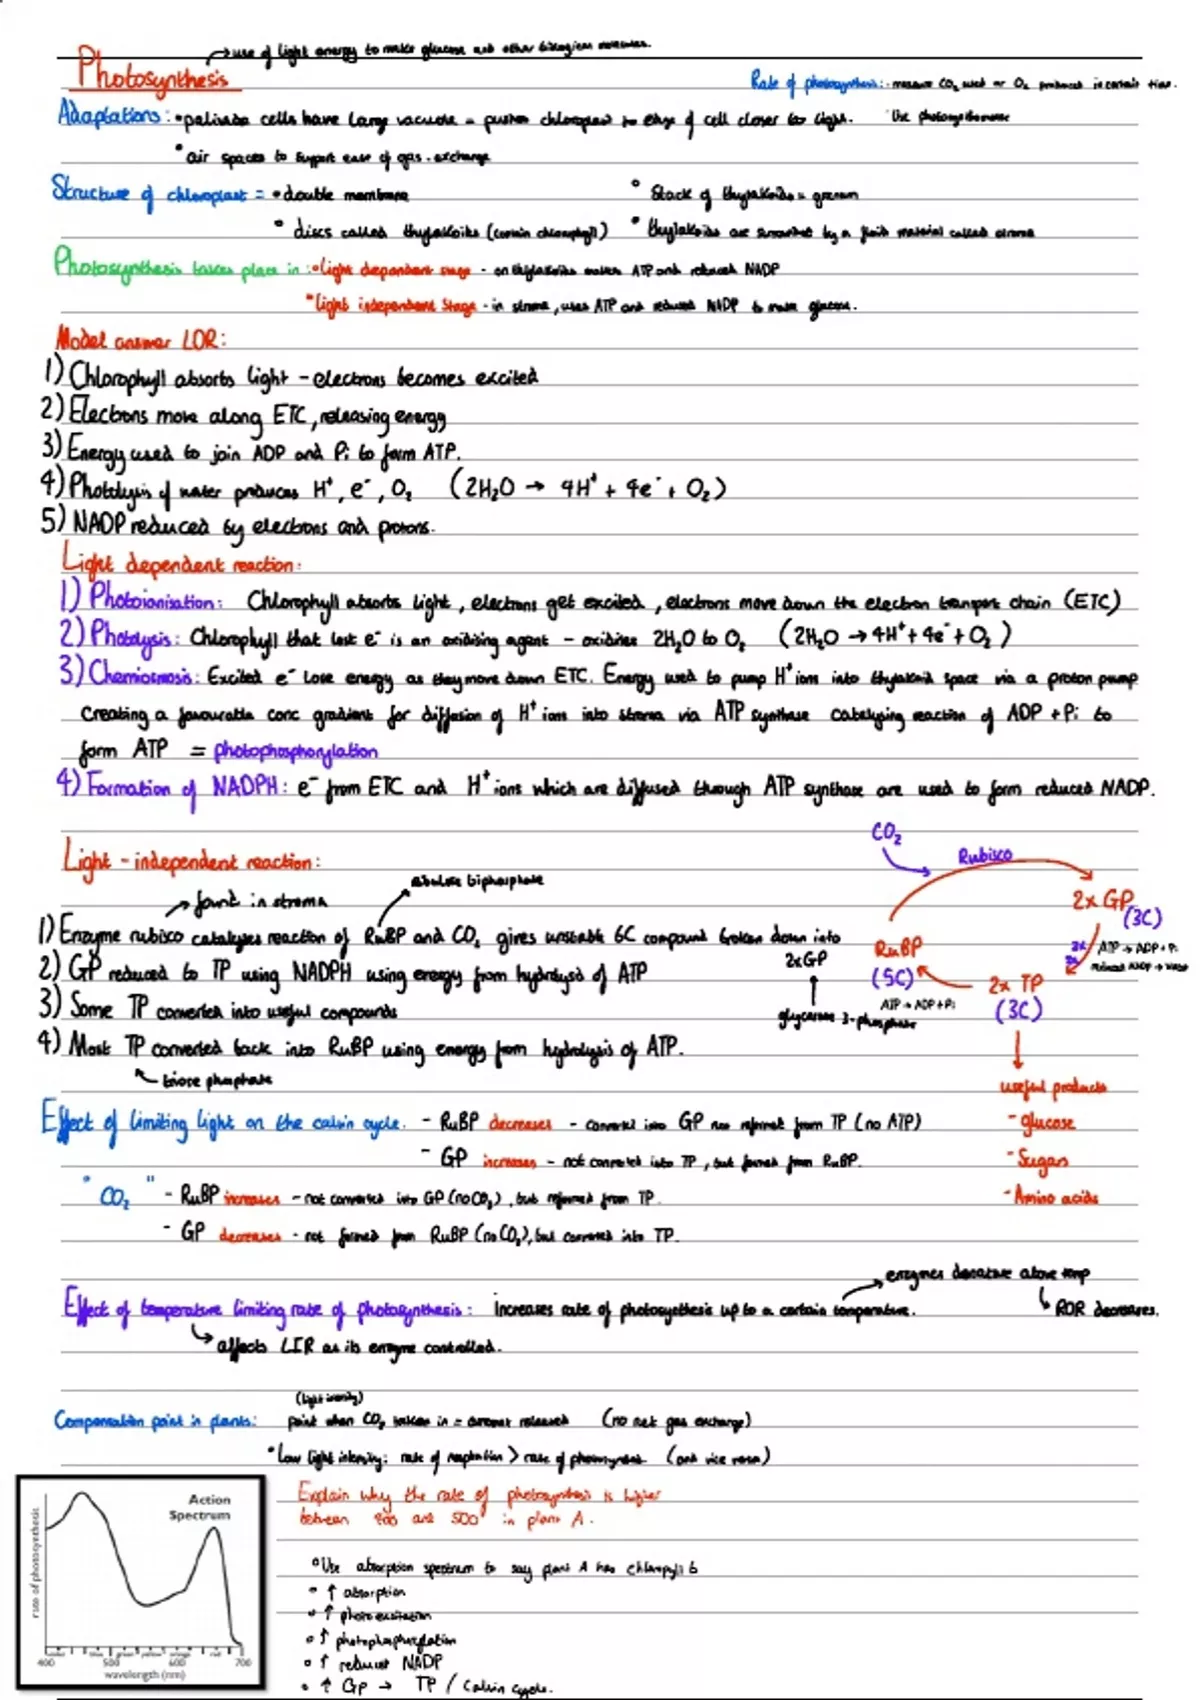 → use of light energy to make glucose and other biological molecules.
Photosynthesis
Rate of photosynthesis: · measure CO₂ used or O₂ produced in certain time.
Adaptations: • palisade cells have large vacuole = pushes chloroplast to edge of cell closer to light. · Use photosynthometer
• air spaces to support ease of gas-exchange
Structure of chloroplast = • double membrane • Stack of thylakoids = granum
• discs called thylakoids (contain chlorophyll) • thylakoids are surrounded by a fluid material called stroma
Photosynthesis takes place in: • light dependent stage - on thylakoids makes ATP and reduced NADP
• light independent stage - in stroma, uses ATP and reduced NADP to make glucose.
Model answer LDR:
1) Chlorophyll absorbs light - electrons becomes excited
2) Electrons move along ETC, releasing energy
3) Energy used to join ADP and Pi to form ATP.
4) Photolysis of water produces H⁺, e⁻, O₂ (2H₂O → 4H⁺ + 4e⁻ + O₂)
5) NADP reduced by electrons and protons.
Light dependent reaction:
1) Photoionisation: Chlorophyll absorbs light, electrons get excited, electrons move down the electron transport chain (ETC)
2) Photolysis: Chlorophyll that lost e⁻ is an oxidising agent - oxidises 2H₂O to O₂ (2H₂O → 4H⁺ + 4e⁻ + O₂)
3) Chemiosmosis: Excited e⁻ lose energy as they move down ETC. Energy used to pump H⁺ ions into thylakoid space via a proton pump
creating a favourable conc gradient for diffusion of H⁺ ions into stroma via ATP synthase catalysing reaction of ADP + Pi to
form ATP = photophosphorylation
4) Formation of NADPH: e⁻ from ETC and H⁺ ions which are diffused through ATP synthase are used to form reduced NADP.
CO₂
Rubisco
Light - independent reaction:
→ found in stroma
ribulose biphosphate
2x GP
(3C)
1) Enzyme rubisco catalyses reaction of RuBP and CO₂ gives unstable 6C compound broken down into
2xGP
glycerate 3-phosphate
RuBP
(5C)
2x ATP → ADP + Pi
2x reduced NADP → NADP
2x TP
(3C)
ATP → ADP + Pi
2) GP reduced to TP using NADPH using energy from hydrolysis of ATP
3) Some TP converted into useful compounds
4) Most TP converted back into RuBP using energy from hydrolysis of ATP.
triose phosphate
useful products
- glucose
- Sugars
- Amino acids
Effect of limiting light on the calvin cycle. - RuBP decreases - converted into GP not reformed from TP (no ATP)
- GP increases - not converted into TP, but formed from RuBP.
" CO₂ " - RuBP increases - not converted into GP (no CO₂), but reformed from TP.
- GP decreases - not formed from RuBP (no CO₂), but converted into TP.
enzymes denature above temp
Effect of temperature limiting rate of photosynthesis: Increases rate of photosynthesis up to a certain temperature. ROR decreases.
affects LIR as its enzyme controlled.
(light intensity)
Compensation point in plants: point when CO₂ taken in = amount released (no net gas exchange)
• Low light intensity: rate of respiration > rate of photosynthesis (and vice versa)
Explain why the rate of photosynthesis is higher
between 400 and 500 in plant A.
• Use absorption spectrum to say plant A has chlorophyll b
• ↑ absorption
• ↑ photoexcitation
• ↑ photophosphorylation
• ↑ reduced NADP
• ↑ GP → TP / Calvin cycle.
Action
Spectrum
rate of photosynthesis
violet blue green yellow orange red
400 500 600 700
wavelength (nm)